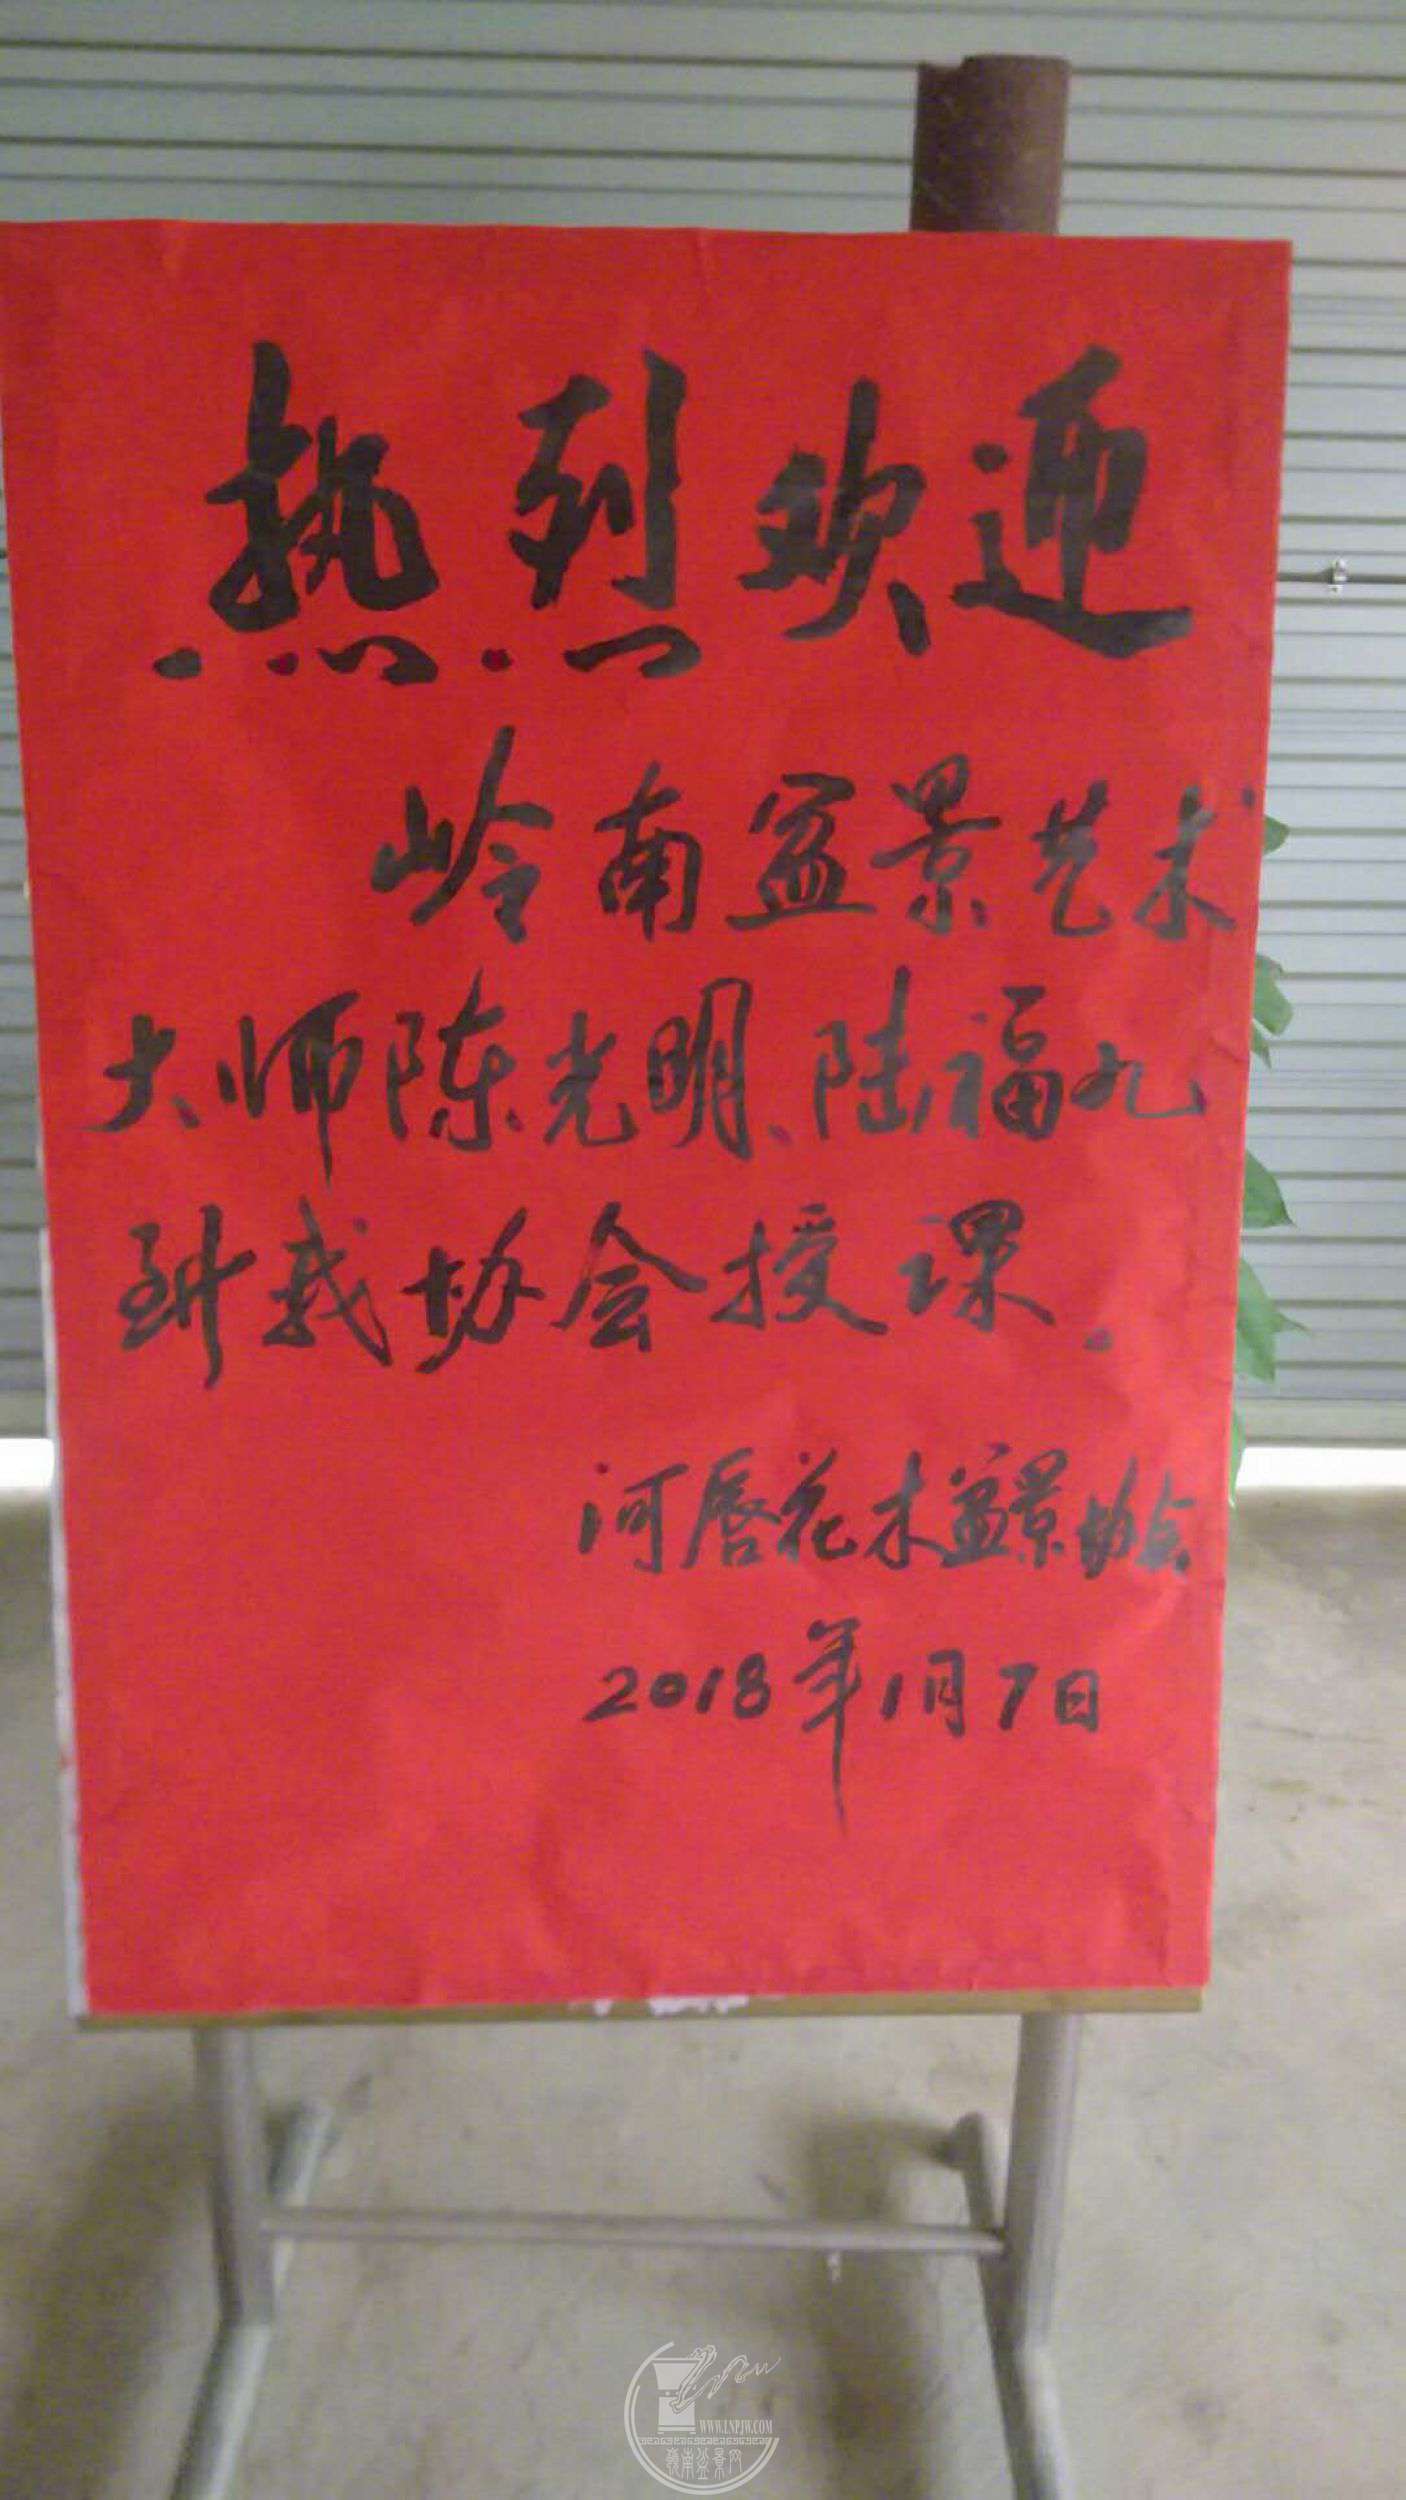 热烈欢迎
岭南盆景艺术
大师陈光明、陆福九
到我协会授课.
河唇花木盆景协会
2018年1月7日
WWW.LNPJW.COM
岭南盆景网